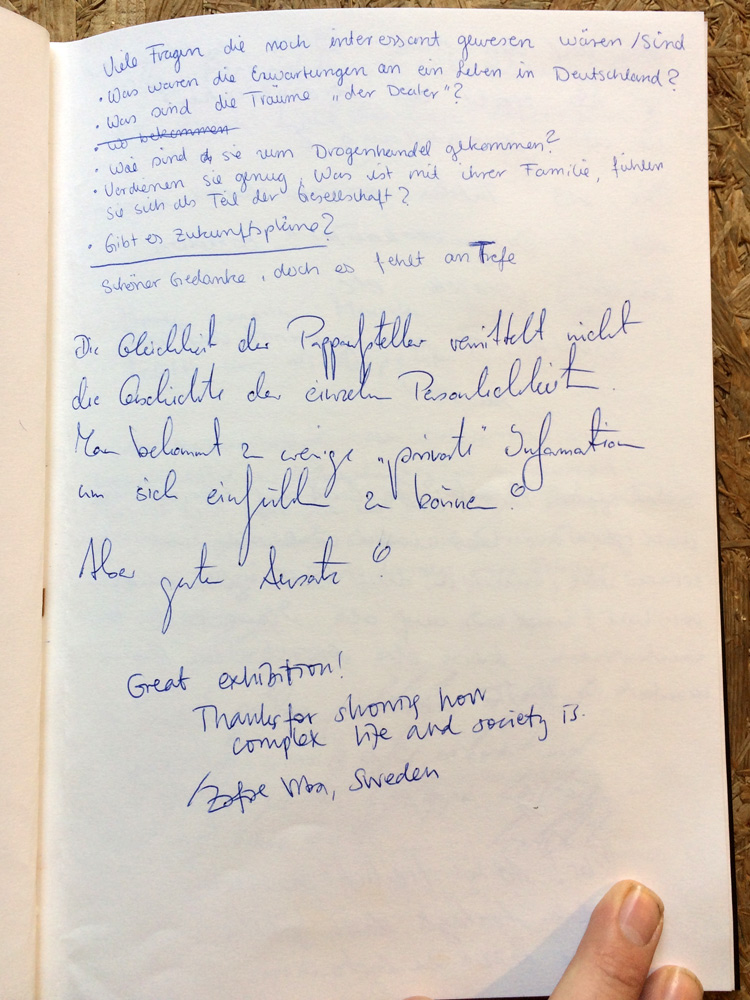 Viele Fragen die noch interessant gewesen wären/sind
• Was waren die Erwartungen an ein Leben in Deutschland?
• Was sind die Träume „der Dealer"?
• wo bekommen
• Wie sind sie zum Drogenhandel gekommen?
• Verdienen sie genug, Was ist mit ihrer Familie, fühlen
sie sich als Teil der Gesellschaft?
• Gibt es Zukunftspläne?
Schöner Gedanke, doch es fehlt an Tiefe
Die Gleichheit der Pappaufsteller vermittelt nicht
die Geschichte der einzeln Persönlichkeit.
Man bekommt zu wenige „private" Information
um sich einfühlen zu können!
Aber guter Ansatz!
Great exhibition!
Thanks for showing how
complex life and society is.
Sweden